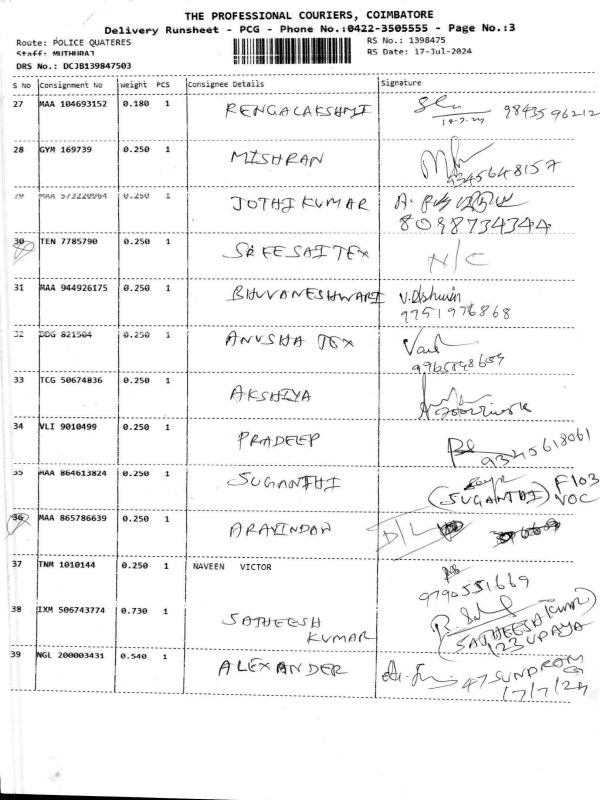 THE PROFESSIONAL COURIERS, COIMBATORE
Delivery Runsheet - PCG - Phone No.:0422-3505555 - Page No.:3
Route: POLICE QUATERES
RS No.: 1398475
Staff: MUTHURAJ
RS Date: 17-Jul-2024
DRS No.: DCJB139847503
S No Consignment No Weight PCS Consignee Details Signature
27 MAA 104693152 0.180 1 RENGALAKSHMI 9843596212
28 GYM 169739 0.250 1 MISHRAN 9345648157
29 MAA 573220964 0.250 1 JOTHI KUMAR
8098734344
30 TEN 7785790 0.250 1 SREESAI TEX N/C
31 MAA 944926175 0.250 1 BHUVANESHWARI V. Ashwin
9751976868
32 DDG 821504 0.250 1 ANUSHA TEX
33 TCG 50674836 0.250 1 AKSHIYA
34 VLI 9010499 0.250 1 PRADEEP 9345618061
35 MAA 864613824 0.250 1 SUGANTHI (SUGANTHI) F103
VOC
36 MAA 865786639 0.250 1 ARAVINDAN D/L
37 TNM 1010144 0.250 1 NAVEEN VICTOR
9790551669
38 IXM 506743774 0.730 1 SATHEESH KUMAR
(SATHEESH KUMAR)
123 UDAYA
39 NGL 200003431 0.540 1 ALEXANDER 47 SUNDRAM
17/7/24